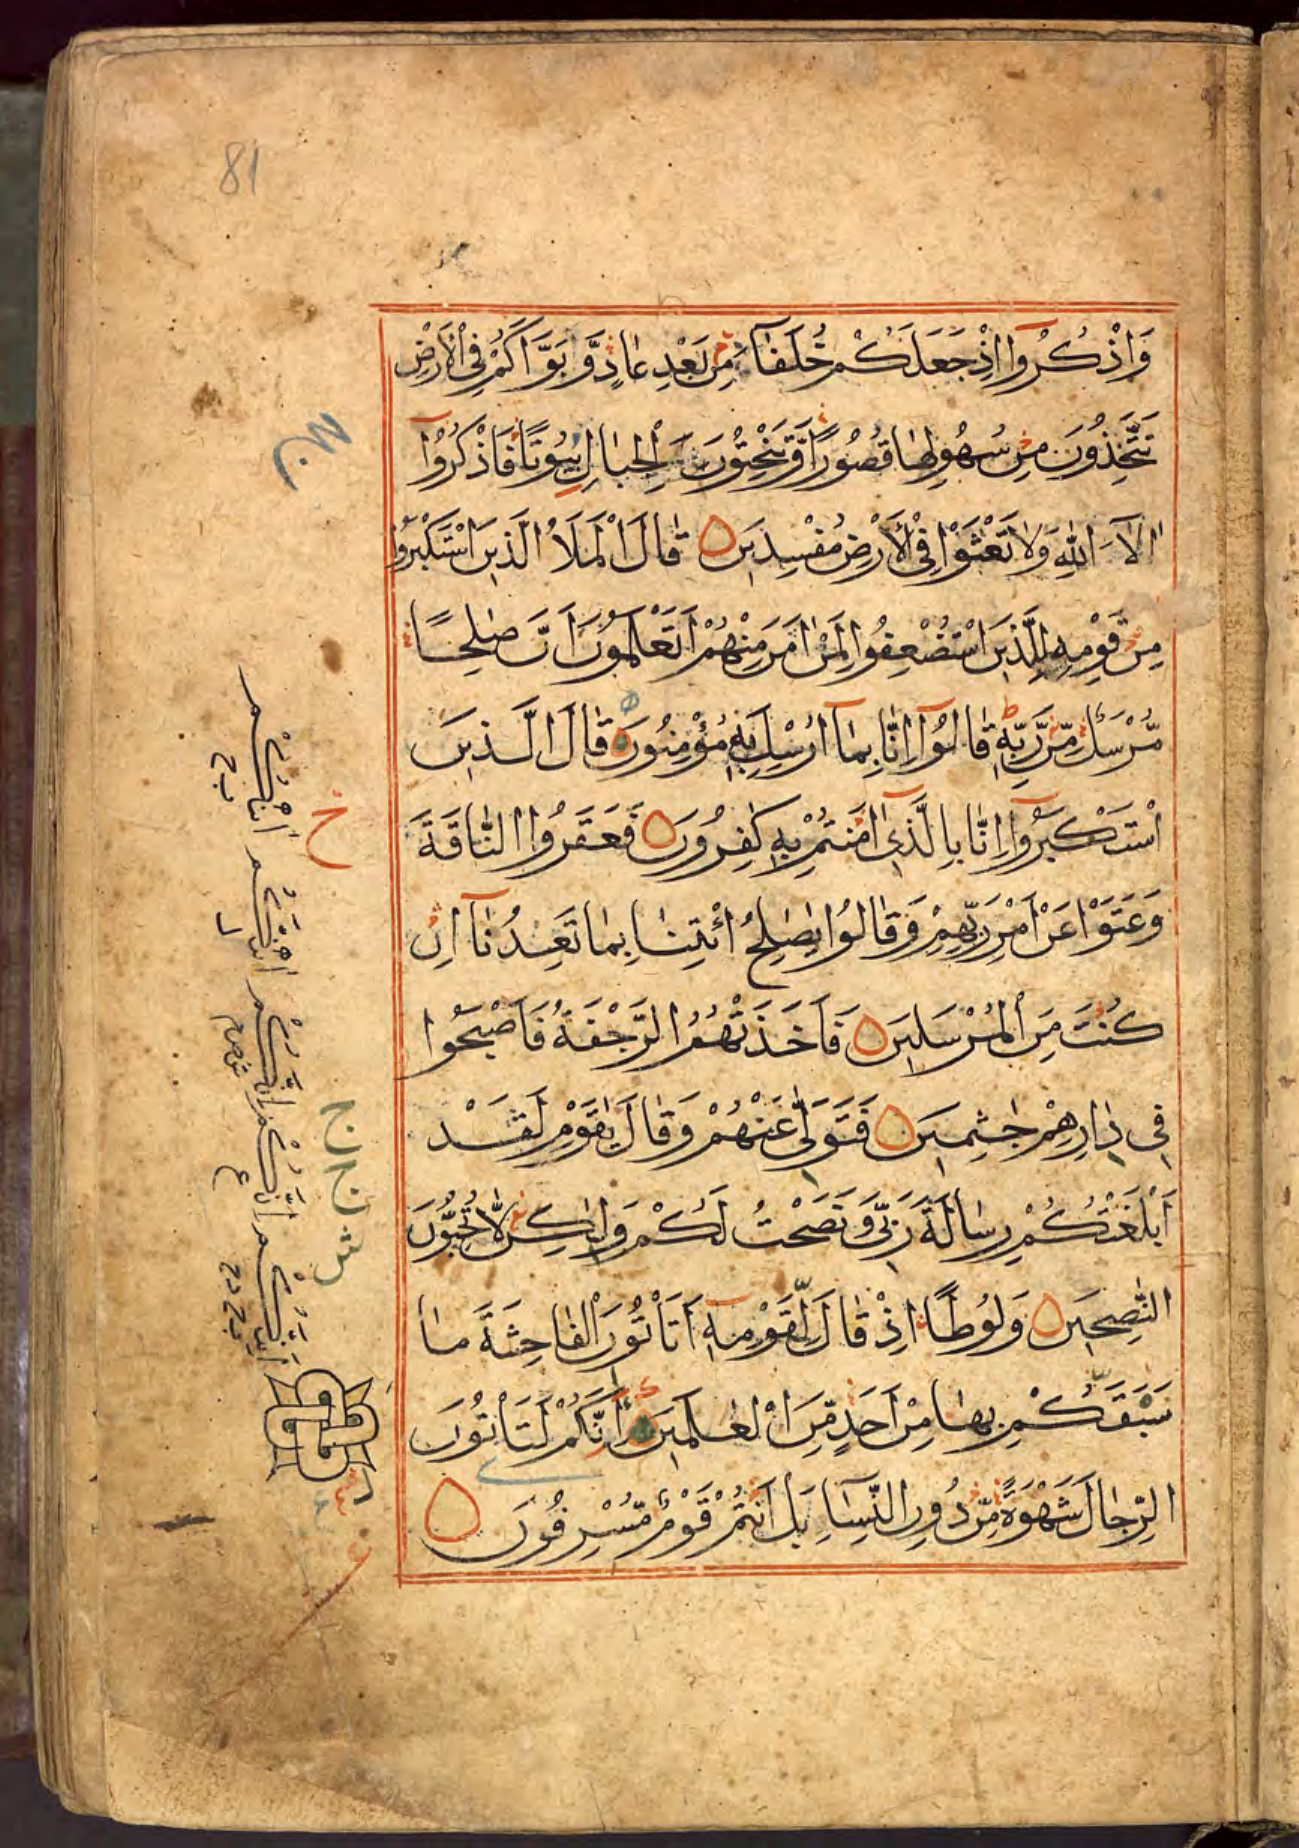 81
وَاذْكُرُوا اِذْ جَعَلَكُمْ خُلَفَآءَ مِنْ بَعْدِ عَادٍ وَّبَوَّاَكُمْ فِى الْاَرْضِ
تَتَّخِذُونَ مِنْ سُهُولِهَا قُصُورًا وَّتَنْحِتُونَ الْجِبَالَ بُيُوتًا فَاذْكُرُوآ
اٰلَآءَ اللّٰهِ وَلَا تَعْثَوْا فِى الْاَرْضِ مُفْسِدِينَ قَالَ الْمَلَاُ الَّذِينَ اسْتَكْبَرُوا
مِنْ قَوْمِهٖ لِلَّذِينَ اسْتُضْعِفُوا لِمَنْ اٰمَنَ مِنْهُمْ اَتَعْلَمُونَ اَنَّ صٰلِحًا
مُّرْسَلٌ مِّنْ رَّبِّهٖ قَالُوآ اِنَّا بِمَآ اُرْسِلَ بِهٖ مُؤْمِنُونَ قَالَ الَّذِينَ
اسْتَكْبَرُوآ اِنَّا بِالَّذِىٓ اٰمَنْتُمْ بِهٖ كٰفِرُونَ فَعَقَرُوا النَّاقَةَ
وَعَتَوْا عَنْ اَمْرِ رَبِّهِمْ وَقَالُوا يٰصٰلِحُ ائْتِنَا بِمَا تَعِدُنَآ اِنْ
كُنْتَ مِنَ الْمُرْسَلِينَ فَاَخَذَتْهُمُ الرَّجْفَةُ فَاَصْبَحُوا
فِى دَارِهِمْ جٰثِمِينَ فَتَوَلّٰى عَنْهُمْ وَقَالَ يٰقَوْمِ لَقَدْ
اَبْلَغْتُكُمْ رِسَالَةَ رَبِّى وَنَصَحْتُ لَكُمْ وَلٰكِنْ لَّا تُحِبُّونَ
النّٰصِحِينَ وَلُوطًا اِذْ قَالَ لِقَوْمِهٖٓ اَتَاْتُونَ الْفَاحِشَةَ مَا
سَبَقَكُمْ بِهَا مِنْ اَحَدٍ مِّنَ الْعٰلَمِينَ اَئِنَّكُمْ لَتَاْتُونَ
الرِّجَالَ شَهْوَةً مِّنْ دُونِ النِّسَآءِ بَلْ اَنْتُمْ قَوْمٌ مُّسْرِفُونَ
ج
ج
ش